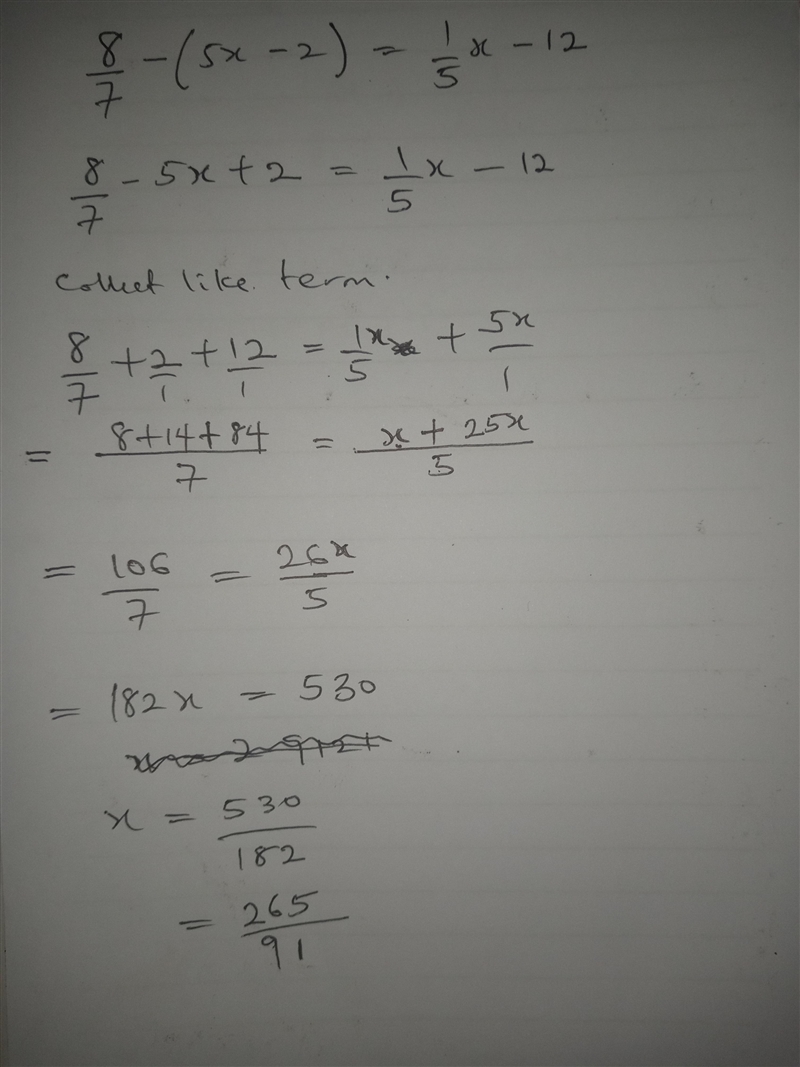 8/7 - (5x - 2) = 1/5 x - 12
8/7 - 5x + 2 = 1/5 x - 12
Collect like term.
8/7 + 2/1 + 12/1 = 1x/5 + 5x/1
= 8+14+84/7 = x + 25x/5
= 106/7 = 26x/5
= 182x = 530
x = 530/182
= 265/91